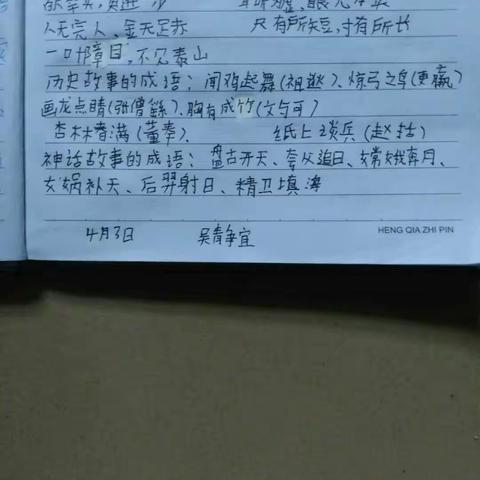 人无完人、金无足赤 尺有所短,寸有所长
一叶障目,不见泰山
历史故事的成语:闻鸡起舞(祖逖)、惊弓之鸟(更羸)
画龙点睛(张僧繇)、胸有成竹(文与可)
杏林春满(董奉)、 纸上谈兵(赵括)
神话故事的成语:盘古开天、夸父追日、嫦娥奔月、
女娲补天、后羿射日、精卫填海
4月3日 吴静宜
HENG QIA ZHI PIN